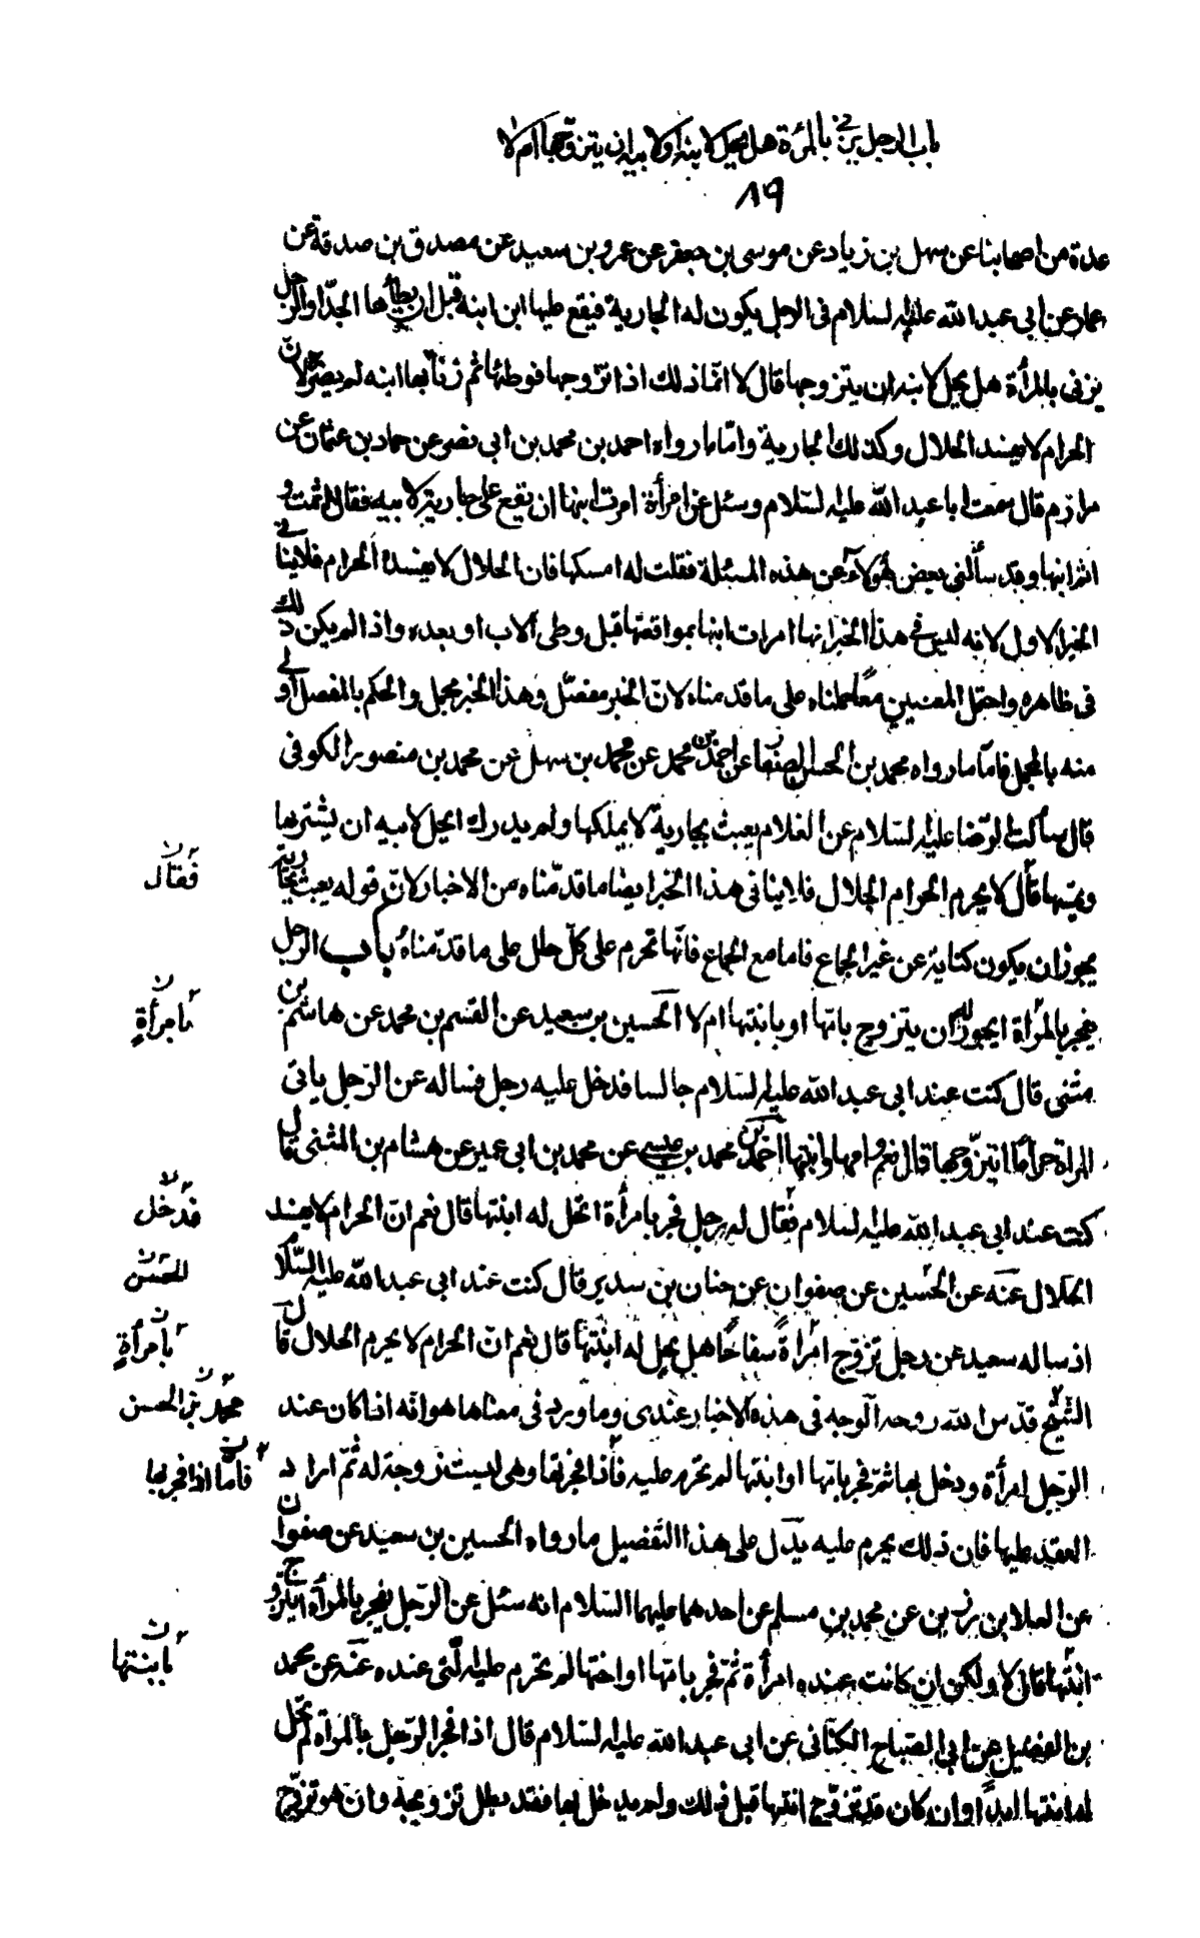 باب الرجل يزنى بالمرأة هل يحل لابنه او لابيه ان يتزوجها ام لا
٨٩
عدة من اصحابنا عن سهل بن زياد عن موسى بن جعفر عن عمرو بن سعيد عن مصدق بن صدقة عن
عمار عن ابى عبد الله عليه السلام فى الرجل يكون له الجارية فيقع عليها ابن ابنه قبل ان يطأها الجد او الرجل
يزنى بالمرأة هل يحل لابنه ان يتزوجها قال لا انما ذلك اذا تزوجها فوطئها ثم زنا بها ابنه لم يضره لان
الحرام لا يفسد الحلال وكذلك الجارية واما ما رواه احمد بن محمد بن ابى نصر عن حماد بن عثمان عن
مرازم قال سمعت ابا عبد الله عليه السلام وسئل عن امرأة امرت ابنها ان يقع على جارية لابيه فقال اثمت و
اثم ابنها وقد سألنى بعض هؤلاء عن هذه المسئلة فقلت له امسكها فان الحلال لا يفسده الحرام فلا ينافى
الخبر الاول لانه ليس فى هذا الخبر انها امرات ابنها بمواقعتها قبل وطى الاب او بعده واذا لم يكن ذلك
فى ظاهره واحتمل المعنيين معا حملناه على ما قدمناه لان الخبر مفصّل وهذا الخبر مجمل والحكم بالمفصل اولى
منه بالمجمل فاما ما رواه محمد بن الحسن الصفار عن احمد بن محمد عن محمد بن سهل عن محمد بن منصور الكوفى
قال سألت الرضا عليه السلام عن الغلام يعبث بجارية لا يملكها ولم يدرك ايحل لابيه ان يشتريها
ويمسها قال لا يحرم الحرام الحلال فلا ينافى هذا الخبر ايضا ما قدمناه من الاخبار لان قوله يعبث بجارية
فقال
يجوز ان يكون كناية عن غير الجماع فاما مع الجماع فانها تحرم على كل حال على ما قدمناه باب الرجل
يفجر بالمرأة ايجوز له ان يتزوج بامها او بابنتها ام لا الحسين بن سعيد عن القسم بن محمد عن هاشم بن
بامرأةٍ
مثنى قال كنت عند ابى عبد الله عليه السلام جالسا فدخل عليه رجل فساله عن الرجل ياتى
المراة حراما ايتزوجها قال نعم وامها وابنتها احمد بن محمد بن عيسى عن محمد بن ابى عمير عن هشام بن المثنى قال
كنت عند ابى عبد الله عليه السلام فقال له رجل فجر بامرأة اتحل له ابنتها قال نعم ان الحرام لا يفسد
فدخل
الحلال عنه عن الحسين عن صفوان عن حنان بن سدير قال كنت عند ابى عبد الله عليه السلام
الحسن
اذ ساله سعيد عن رجل تزوج امراة سفاحا هل يحل له ابنتها قال نعم ان الحرام لا يحرم الحلال قال
بامرأةٍ
الشيخ قدس الله روحه الوجه فى هذه الاخبار عندى وما ورد فى معناها هو انه اذا كان عند
محمد بن الحسن
الرجل امرأة ودخل بها ثم فجر بامها او ابنتها لم تحرم عليه فاذا فجر بها وهى ليست زوجة له ثم اراد
فاما اذا فجر بها
العقد عليها فان ذلك يحرم عليه يدل على هذا التفصيل ما رواه الحسين بن سعيد عن صفوان
عن العلا بن رزين عن محمد بن مسلم عن احدهما عليهما السلام انه سئل عن الرجل يفجر بالمرأة ايتزوج
ابنتها قال لا ولكن ان كانت عنده امرأة ثم فجر بامها او اختها لم تحرم عليه التى عنده عنه عن محمد
بابنتها
بن الفضيل عن ابى الصباح الكنانى عن ابى عبد الله عليه السلام قال اذا فجر الرجل بالمرأة لم تحل
له ابنتها ابدًا وان كان قد تزوج ابنتها قبل ذلك ولم يدخل بها فقد بطل تزويجه وان هو تزوج